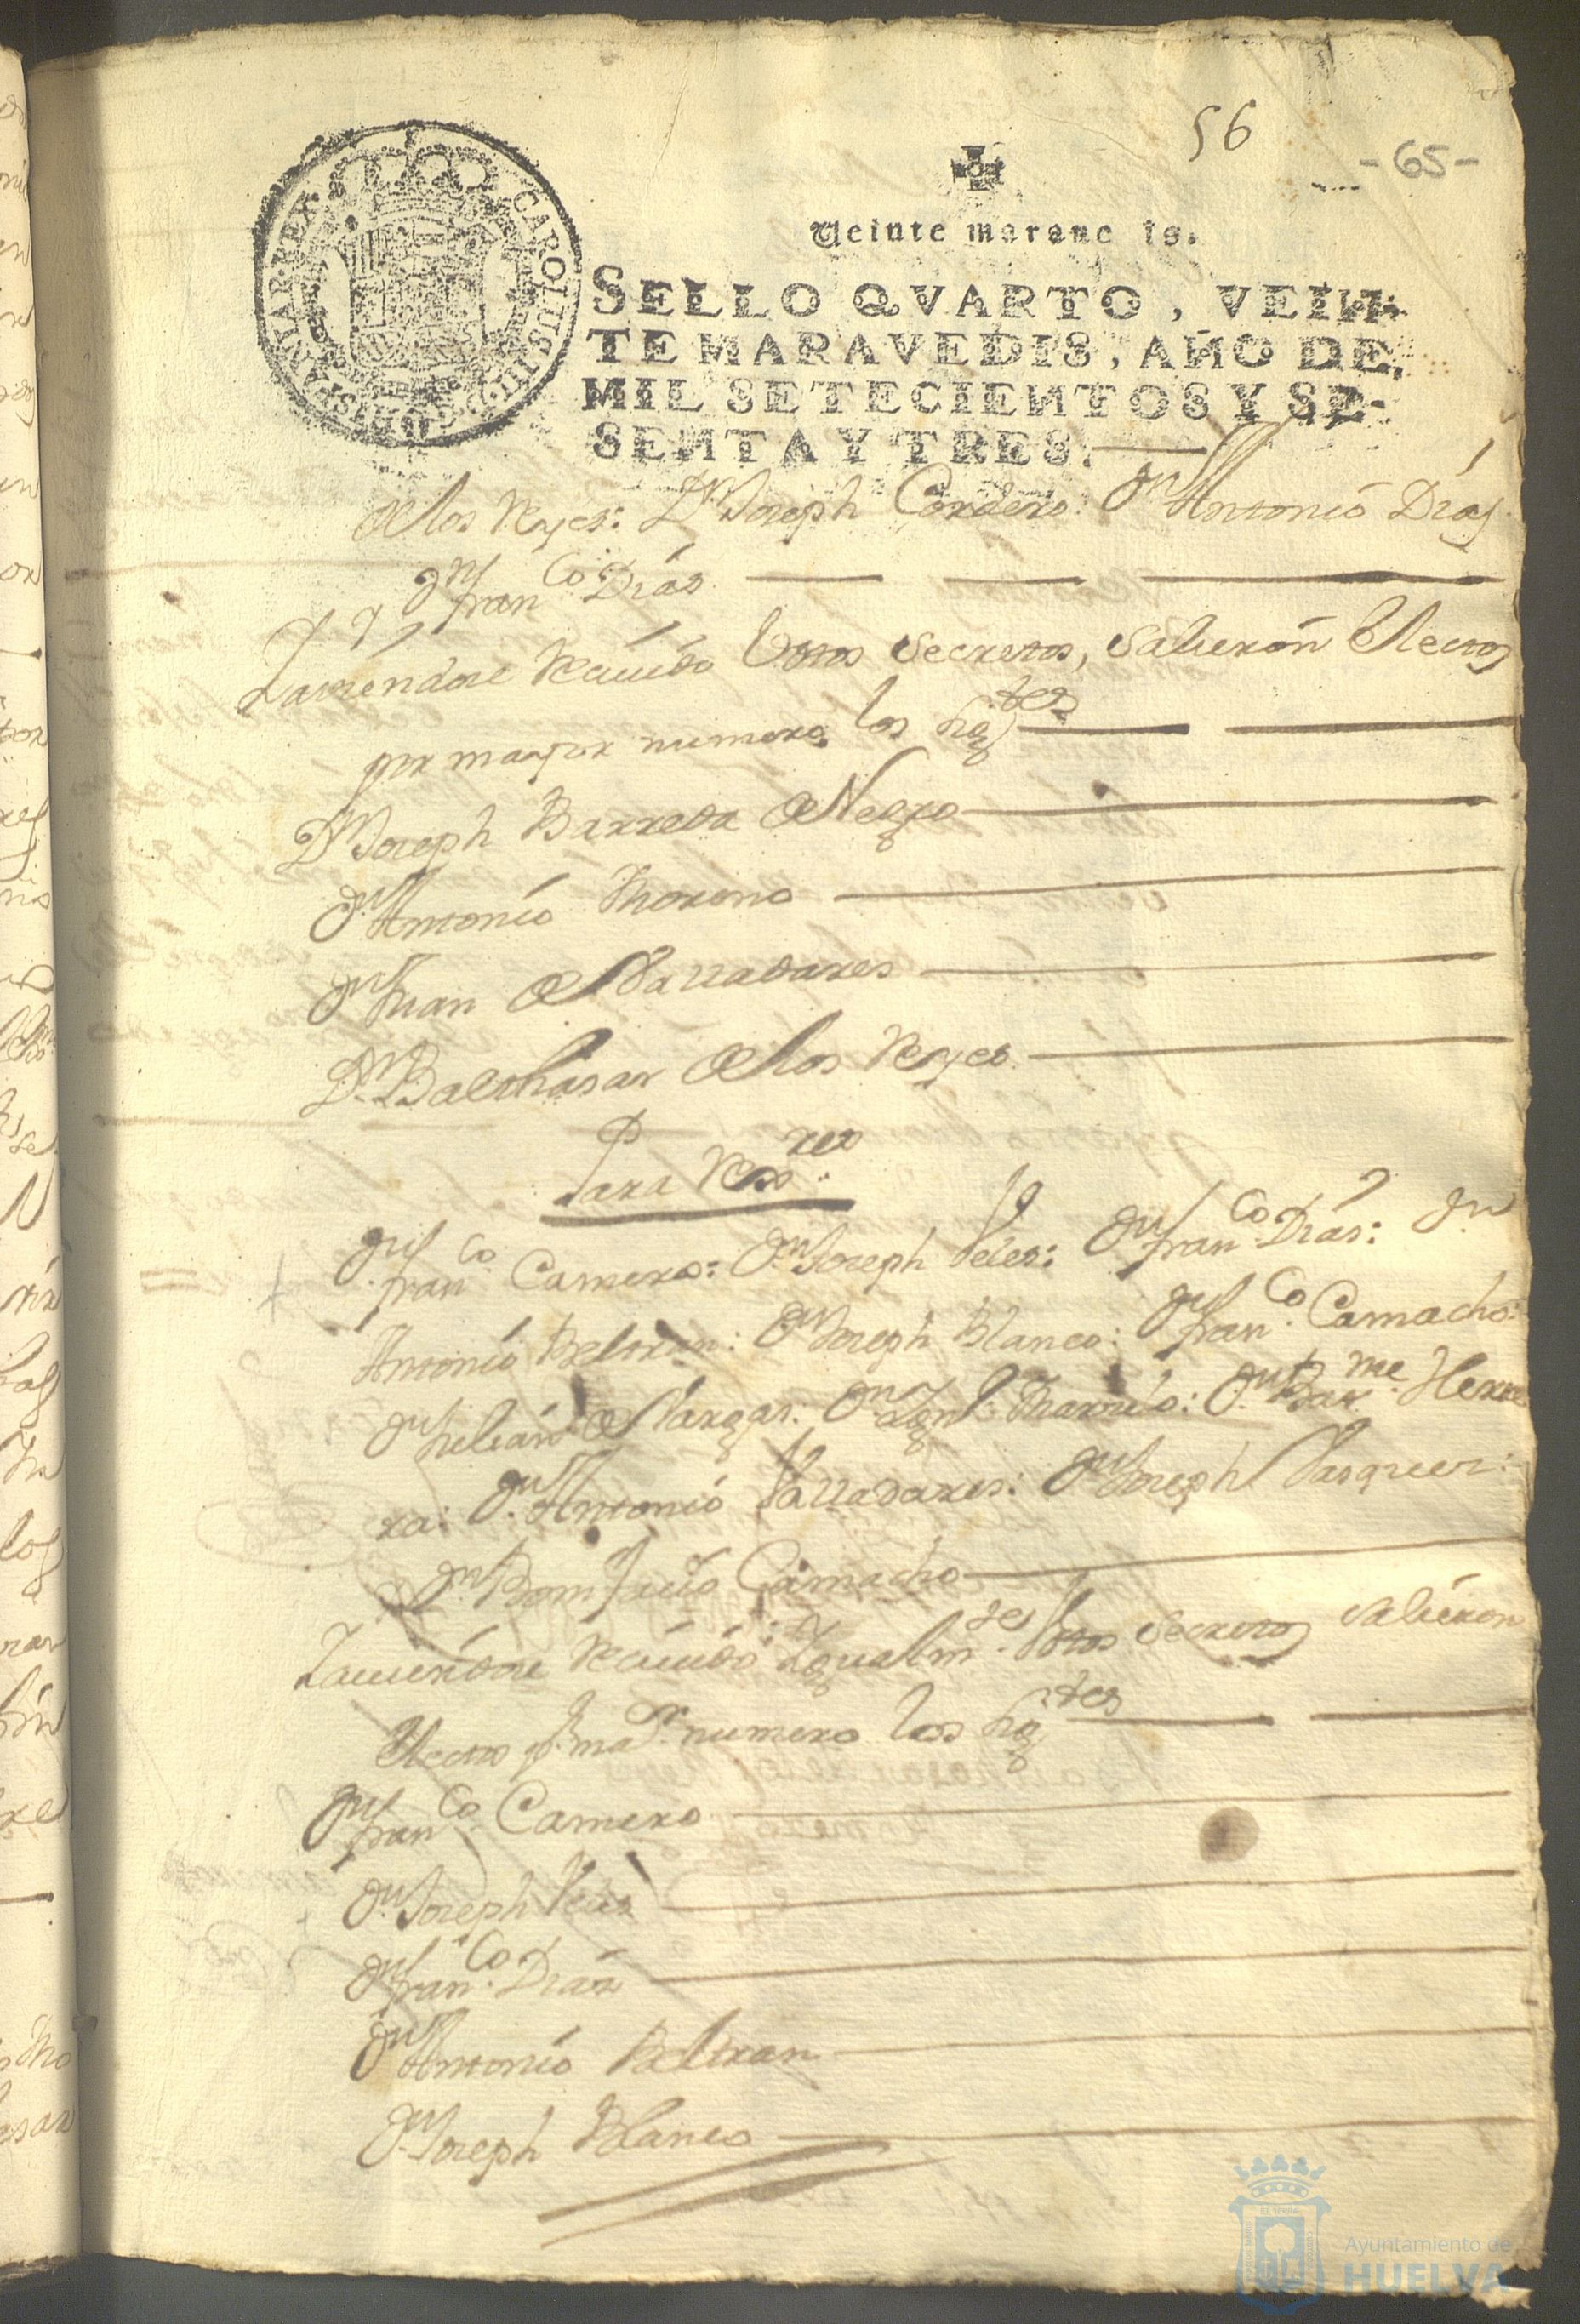 56
-65-
Veinte marauedis.
SELLO QVARTO, VEIN-
TE MARAVEDIS, AÑO DE
MIL SETECIENTOS Y SE-
SENTA Y TRES.
CAROLUS III D G HISPANIAR REX
de los Reyes: Dn Joseph Cordero: Dn Antonio Dias
y Dn Franco Dias
Y auiendose Reciuido Votos secretos, salieron Electos
por mayor numero los sigtes
Dn Joseph Barreda de Negro
Dn Antonio Moreno
Dn Juan de Valladares
Dn Balthasar de los Reyes
Para Rexres
Dn Franco Camero: Dn Joseph Veles: Dn Franco Dias: Dn
Antonio Beltran: Dn Joseph Blanco: Dn Franco Camacho:
Dn Julian de Vargas: Dn Ignl: Dn Barme Herre
ra: Dn Antonio Valladares: Dn Joseph Vasques:
Dn Bonifacio Camacho
Y auiendose Reciuido Igualmte Votos secretos salieron
Electos pr mar numero los sigtes
Dn Franco Camero
Dn Joseph Veles
Dn Franco Dias
Dn Antonio Beltran
Dn Joseph Blanco
Ayuntamiento de
HUELVA